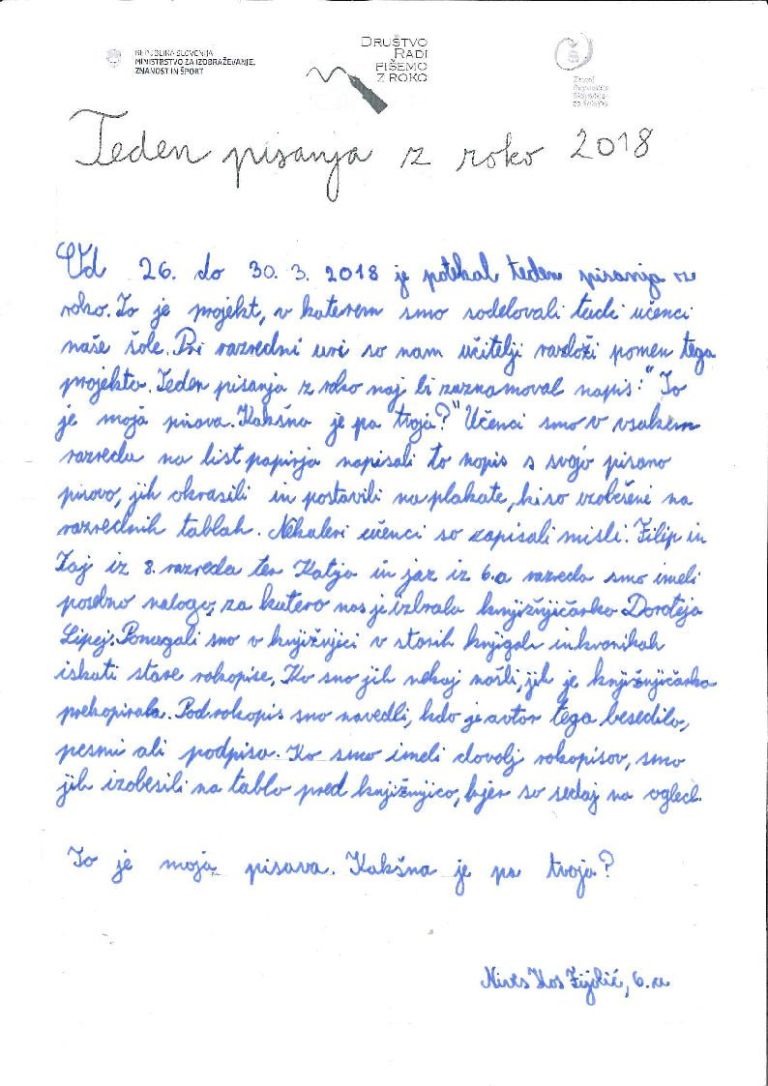 REPUBLIKA SLOVENIJA
MINISTRSTVO ZA IZOBRAŽEVANJE,
ZNANOST IN ŠPORT
DRUŠTVO
RADI
PIŠEMO
Z ROKO
Teden pisanja z roko 2018
Od 26. do 30. 3. 2018 je potekal teden pisanja z
roko. To je projekt, v katerem smo sodelovali tudi učenci
naše šole. Pri razredni uri so nam učitelji razloži pomen tega
projekta. Teden pisanja z roko naj bi zaznamoval napis: "To
je moja pisava. Kakšna je pa tvoja?" Učenci smo v vsakem
razredu na list papirja napisali to napis s svojo pisano
pisavo, jih okrasili in postavili na plakate, ki so izobešeni na
razrednih tablah. Nekateri učenci so zapisali misli. Filip in
Taj iz 8. razreda ter Katja in jaz iz 6.a razreda smo imeli
posebno nalogo, za katero nas je izbrala knjižničarka Doroteja
Lipej. Pomagali smo v knjižnjici v starih knjigah in kronikah
iskati stare rokopise. Ko smo jih nekaj našli, jih je knjižnjičarka
prekopirala. Pod rokopis smo navedli, kdo je avtor tega besedila,
pesmi ali podpisa. Ko smo imeli dovolj rokopisov, smo
jih izobesili na tablo pred knjižnjico, kjer so sedaj na ogled.
To je moja pisava. Kakšna je pa tvoja?
Kos 6. a